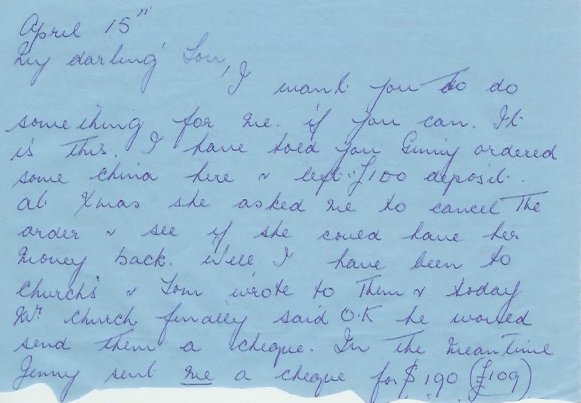 April 15"
My darling Tom,
I want you to do
something for me. if you can. It
is this. I have told you Ginny ordered
some china here & left £100 deposit.
at Xmas she asked me to cancel the
order & see if she could have her
money back. Well I have been to
Church's & Tom wrote to them & today
Mr Church finally said O.K he would
send them a cheque. In the meantime
Jenny sent me a cheque for $190 (£109)